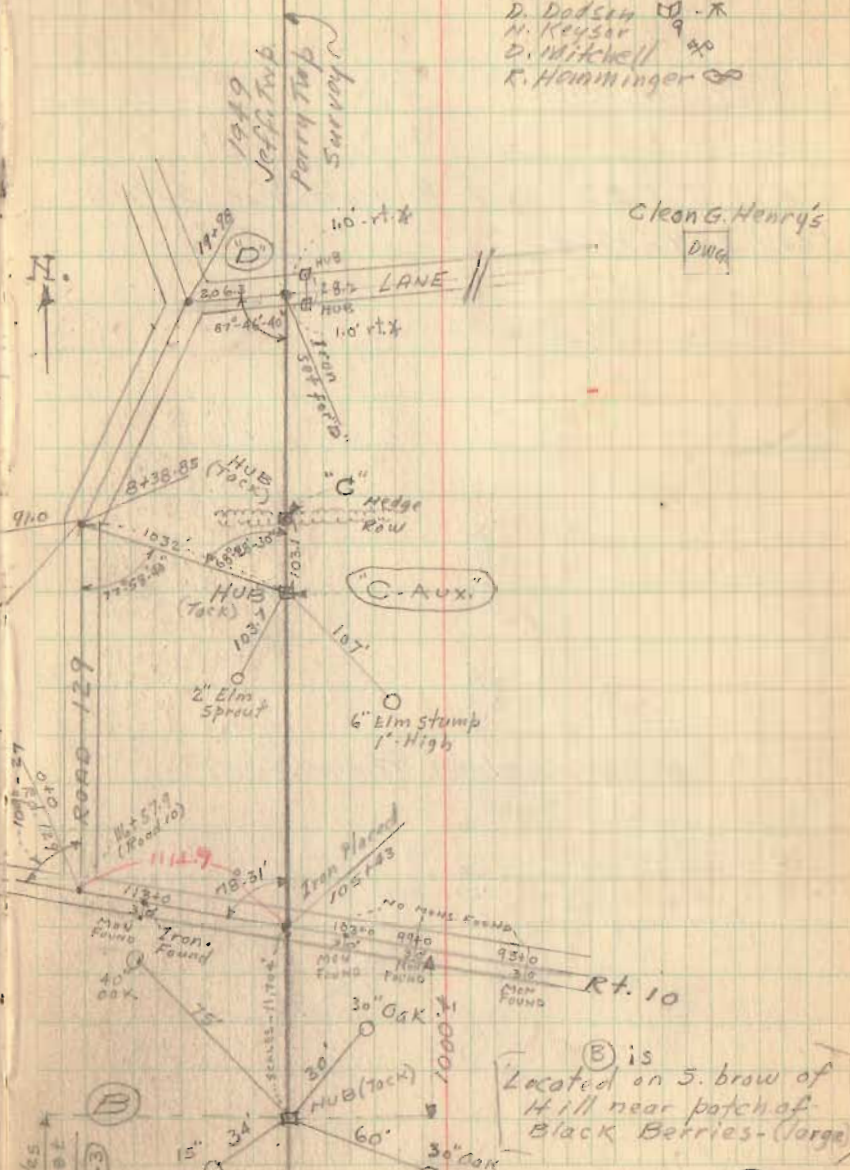 D. Dodson
H. Keysor
D. Mitchell
K. Hamminger
1949
Jeff. Twp.
Perry Twp
Survey
Cleon G. Henry's
DWG
N.
19+98
"D"
1.0' rt.
HUB
LANE
206.3
28.2
HUB
87°-46'-40"
1.0' rt.
Iron
Set for "D"
HUB
(Tack)
"C"
8+38.85
Hedge
Row
91.0
1032'
103.1
77°58'
HUB
(Tack)
"C-Aux."
103.7
107'
2" Elm
Sprout
6" Elm Stump
1'-High
ROAD 129
0+0
129
+57.9
(Road 10)
1114.9
78°-31'
Iron Placed
105+43
113+0
3.0
MON
FOUND
Iron.
Found
NO MONS FOUND
103+0
3.0
MON
FOUND
99+0
3.0
MON
FOUND
95+0
3.0
MON
FOUND
Rt. 10
40"
OAK
75'
SCALES-11,704'
30" Oak
30'
1000'±
HUB (Tack)
B
34'
60'
15"
30" Oak
B is
Located on S. brow of
Hill near patch of
Black Berries-(large)